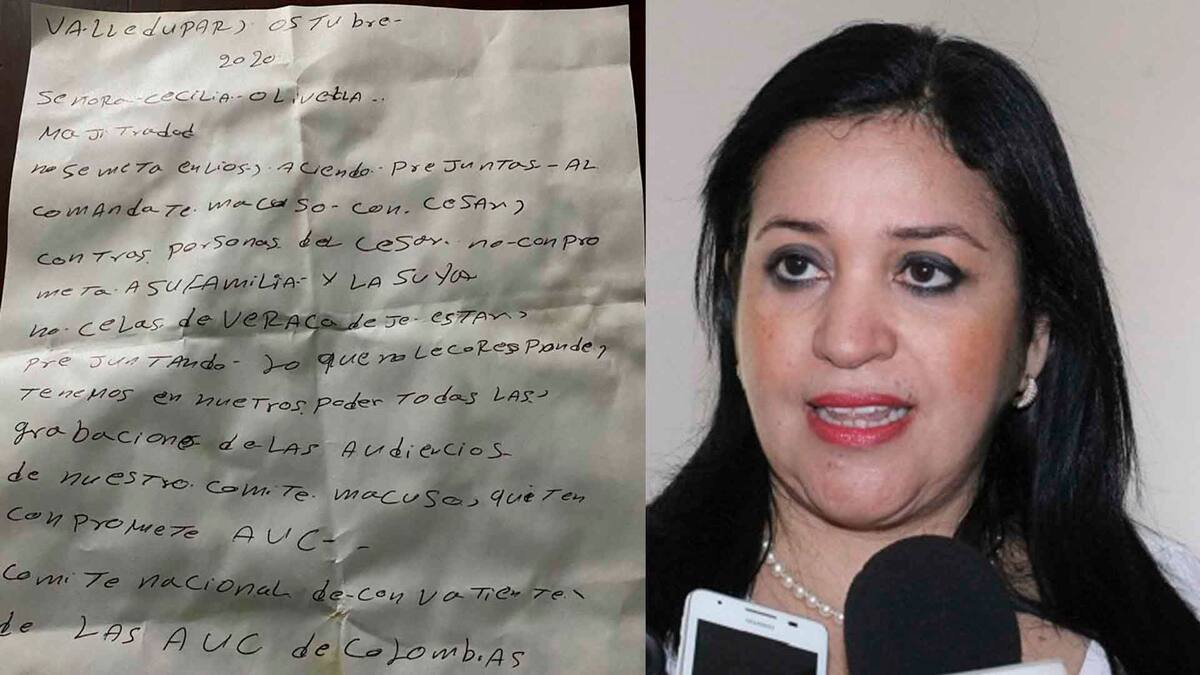 VALLeduPAR) OSTubre-
2020
SeñORA-CECILIA-OLIVeLLA..
MAJiTRAdad
no Se meTA enLios, ACIendo-PReJUNTAS-AL
COMANdATe. MACASO-CON. CESAR,
CONTRAS PERSONAS del CeSAR. no-conpro
meTA ASU FAMILIA-Y LA SUYA
no. CELAS de VERACA deJe-ESTAR,
PReJUNTANdo-LO que no LeCOResPonde,
TENemoS en nueTROS Poder TODAS LAS,
grabacione de LAS AUdiencios
de nuesTRO. ComiTe. MACUSO, que Ten
conPRomeTe AUC--
comiTe nacional de-conVaTienTe,
de LAS AUC de COLOMb.AS
HUAWEI